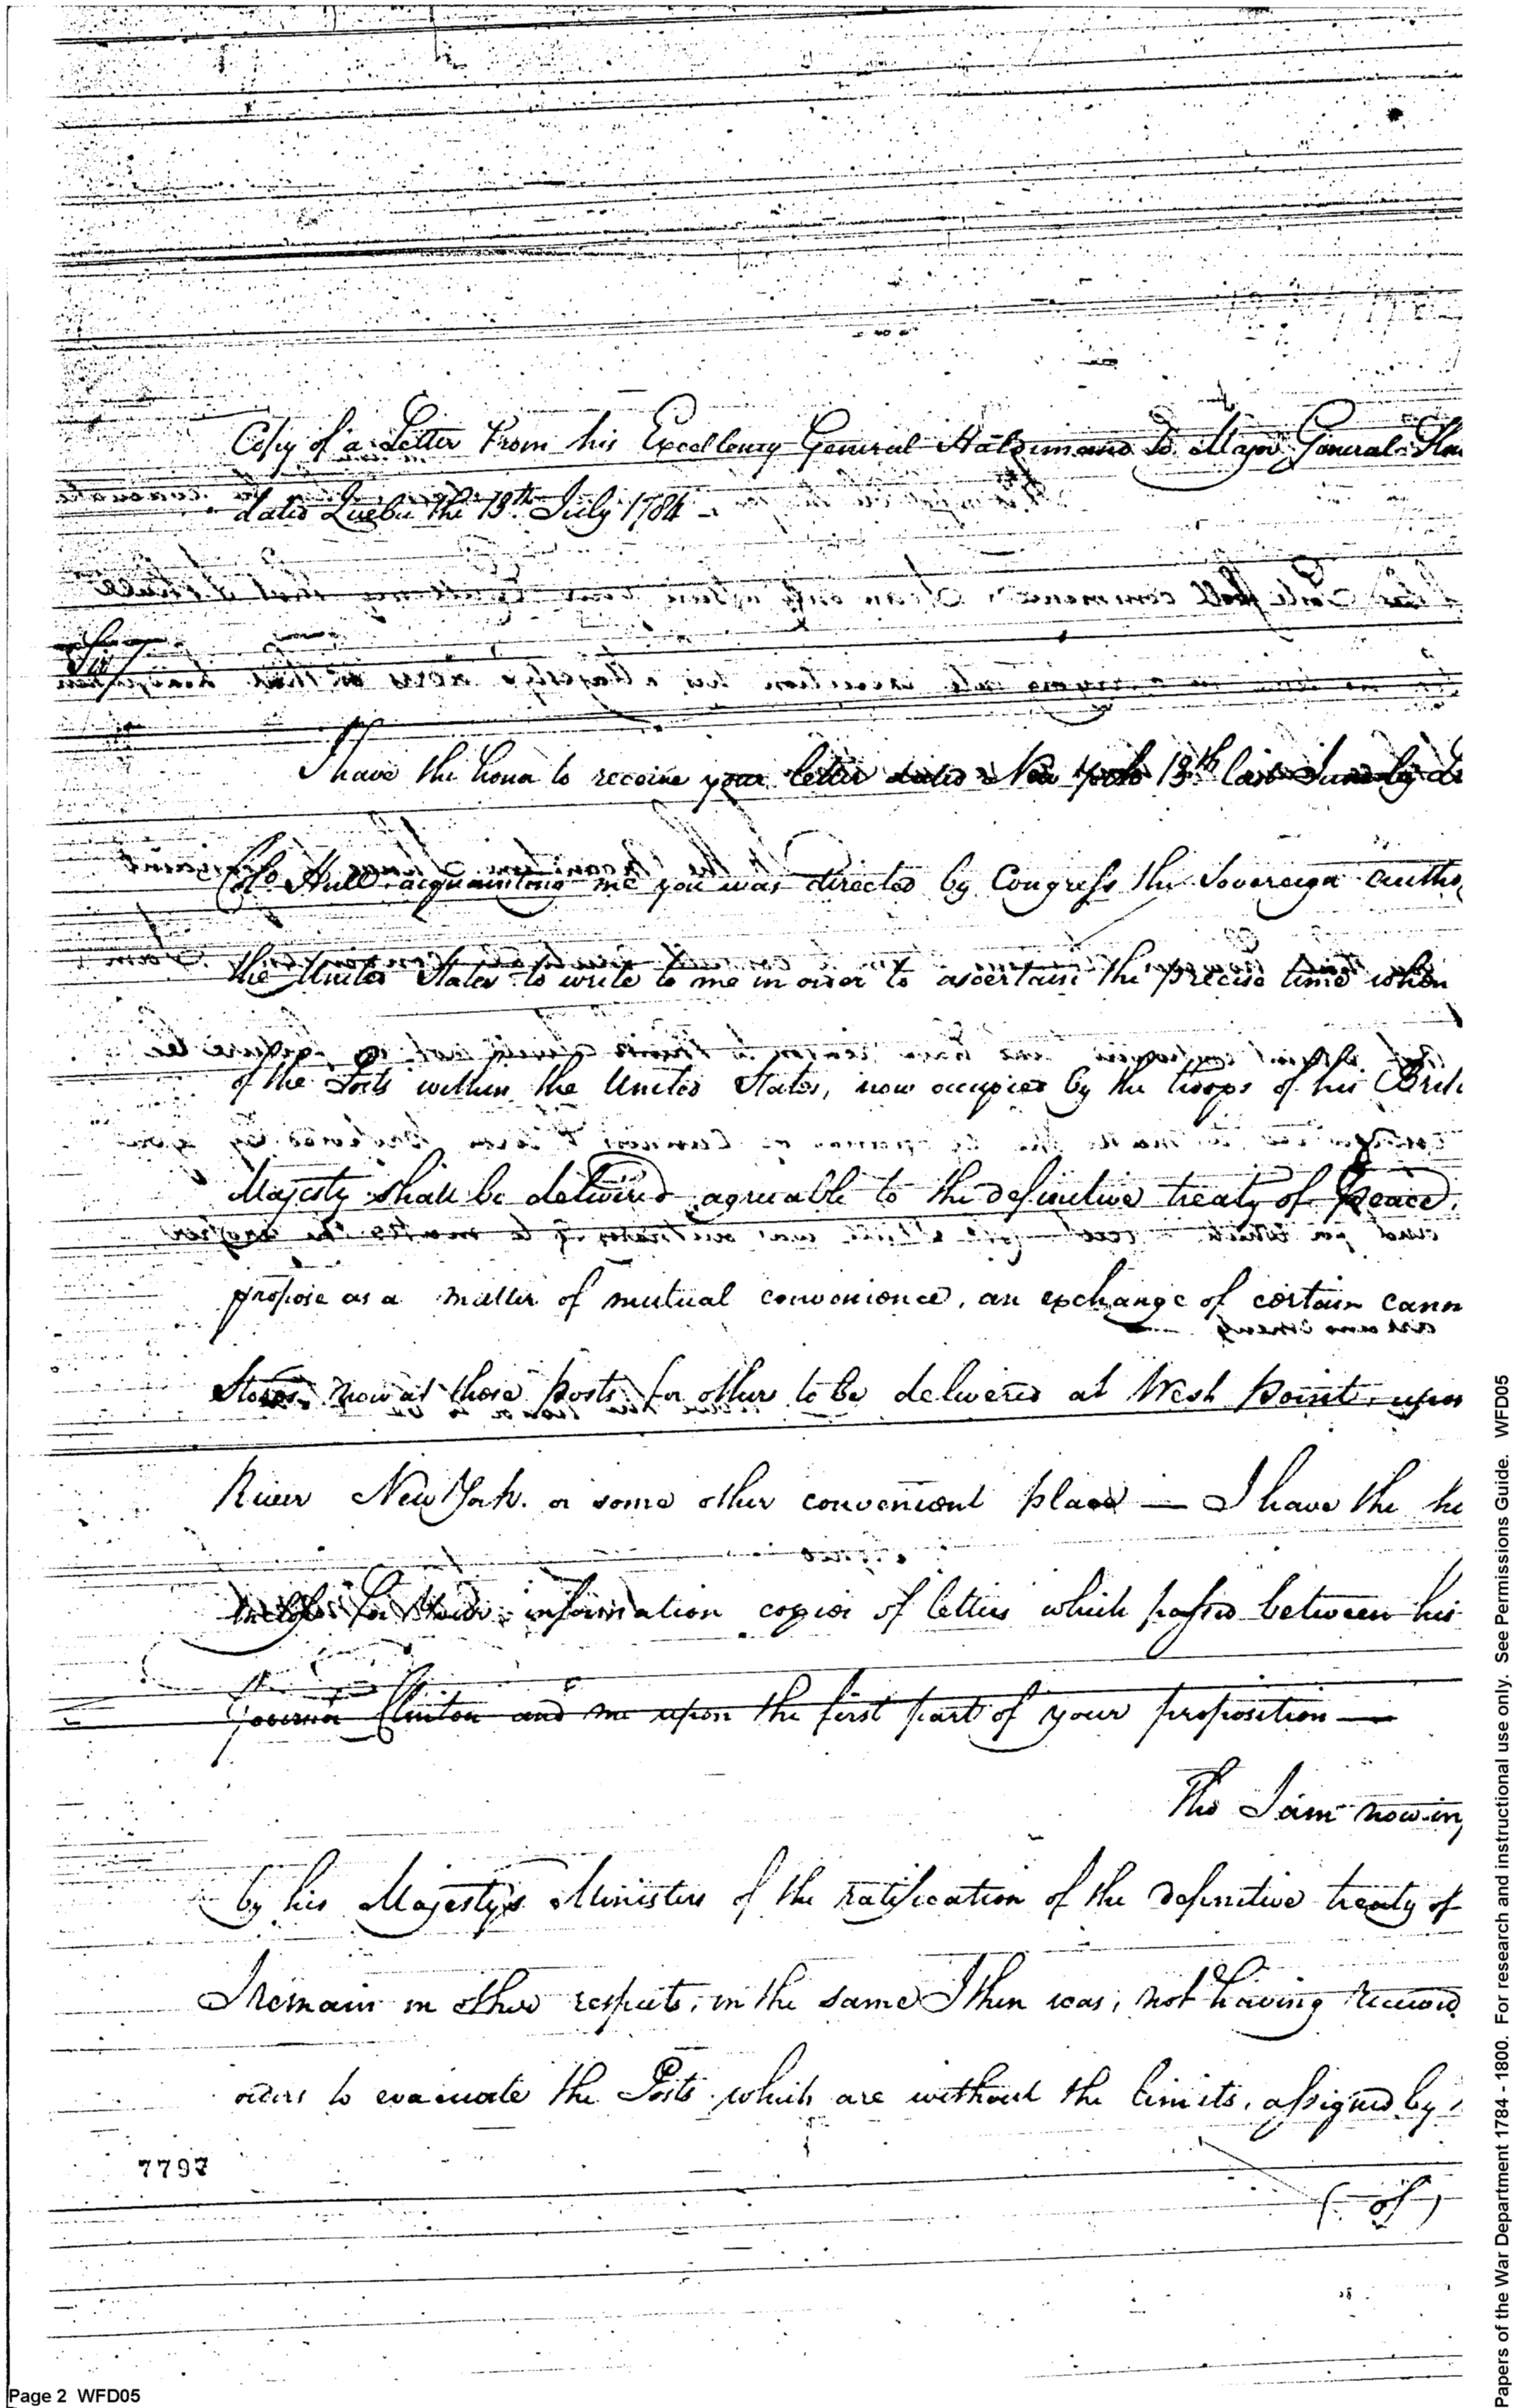 Copy of a Letter From his Excellency General Haldimand to Major General
dated Quebec the 13th July 1784 -
Sir
I have the honr to receive your letter dated New York 13th last June by
Colo. Hull acquainting me you was directed by Congress the Sovereign
the United States to write to me in order to ascertain the precise time when
of the Posts within the United States, now occupied by the troops of his
Majesty shall be delivered agreable to the definitive treaty of Peace,
propose as a matter of mutual convenience, an exchange of certain
Stores now at those Posts for others to be delivered at West Point, upon
River New York. or some other convenient place — I have the
inclose for your information copies of letters which passed between his
Governor Clinton and me upon the first part of your proposition —
Tho I am now
by his Majesty's Ministers of the ratification of the definitive treaty of
I remain in other respects, in the same I then was, not having received
orders to evacuate the Posts which are without the limits, assigned by
7797
Page 2 WFD05
Papers of the War Department 1784 - 1800. For research and instructional use only. See Permissions Guide. WFD05